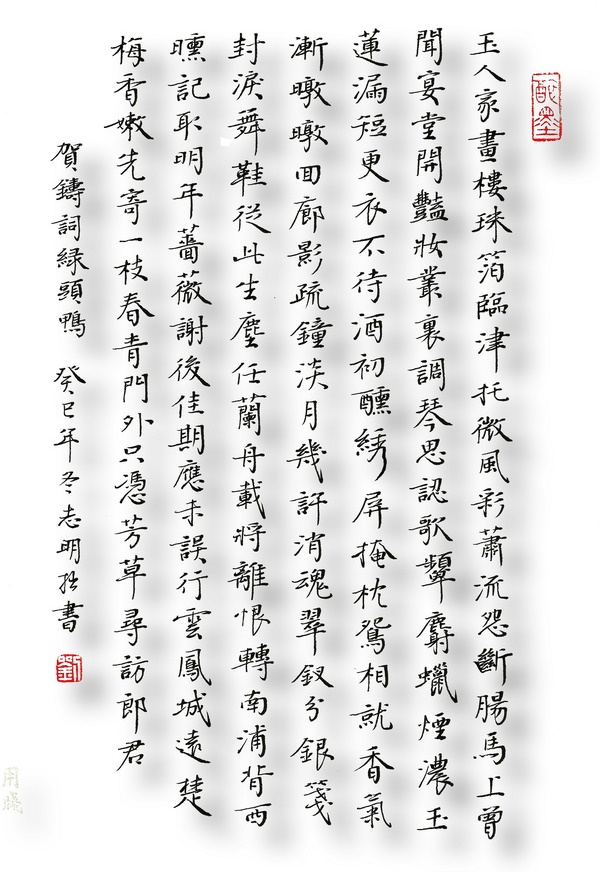 玉人家畫樓珠箔臨津托微風彩蕭流怨斷腸馬上曾
聞宴堂開豔妝叢裏調琴思認歌顰麝蠟煙濃玉
蓮漏短更衣不待酒初醺綉屏掩枕鴛相就香氣
漸暾暾回廊影疏鐘淡月幾許消魂翠釵分銀箋
封淚舞鞋從此生塵任蘭舟載將離恨轉南浦背西
曛記取明年薔薇謝後佳期應未誤行雲鳳城遠楚
梅香嫩先寄一枝春青門外只憑芳草尋訪郎君
賀鑄詞緑頭鴨 癸巳年冬志明拙書
劉